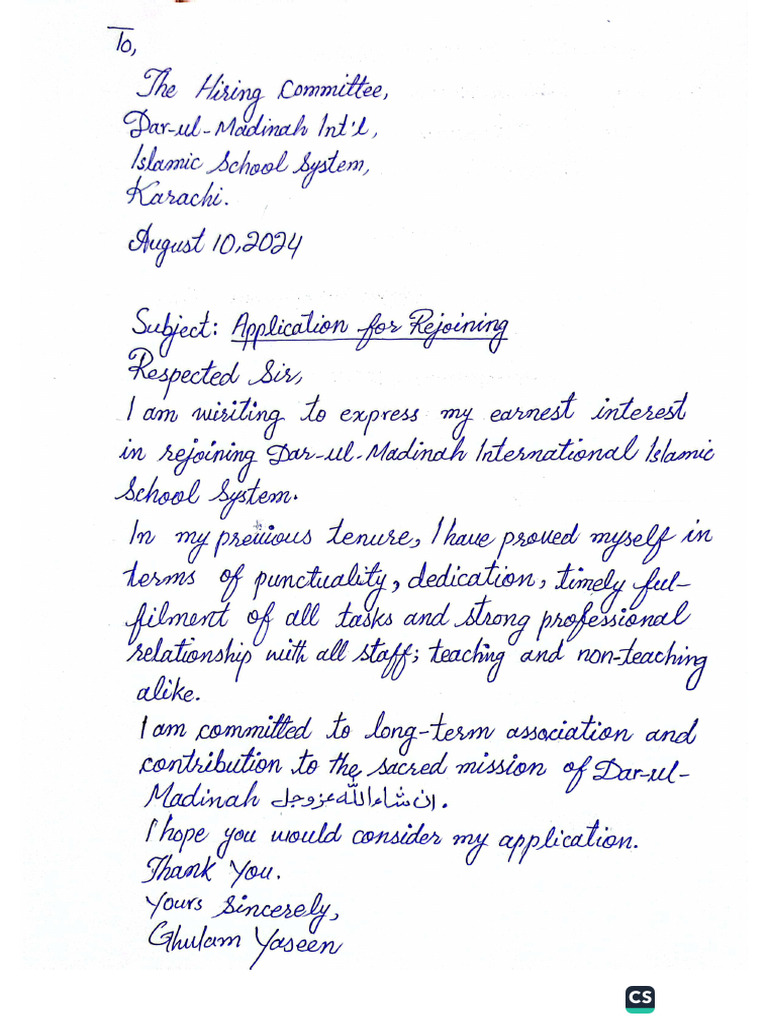 To,
The Hiring Committee,
Dar-ul-Madinah Int'l,
Islamic School System,
Karachi.
August 10, 2024
Subject: Application for Rejoining
Respected Sir,
I am writing to express my earnest interest
in rejoining Dar-ul-Madinah International Islamic
School System.
In my previous tenure, I have proved myself in
terms of punctuality, dedication, timely ful-
filment of all tasks and strong professional
relationship with all staff; teaching and non-teaching
alike.
I am committed to long-term association and
contribution to the sacred mission of Dar-ul-
Madinah ان شاء اللہ عزوجل.
I hope you would consider my application.
Thank You.
Yours Sincerely,
Ghulam Yaseen
CS